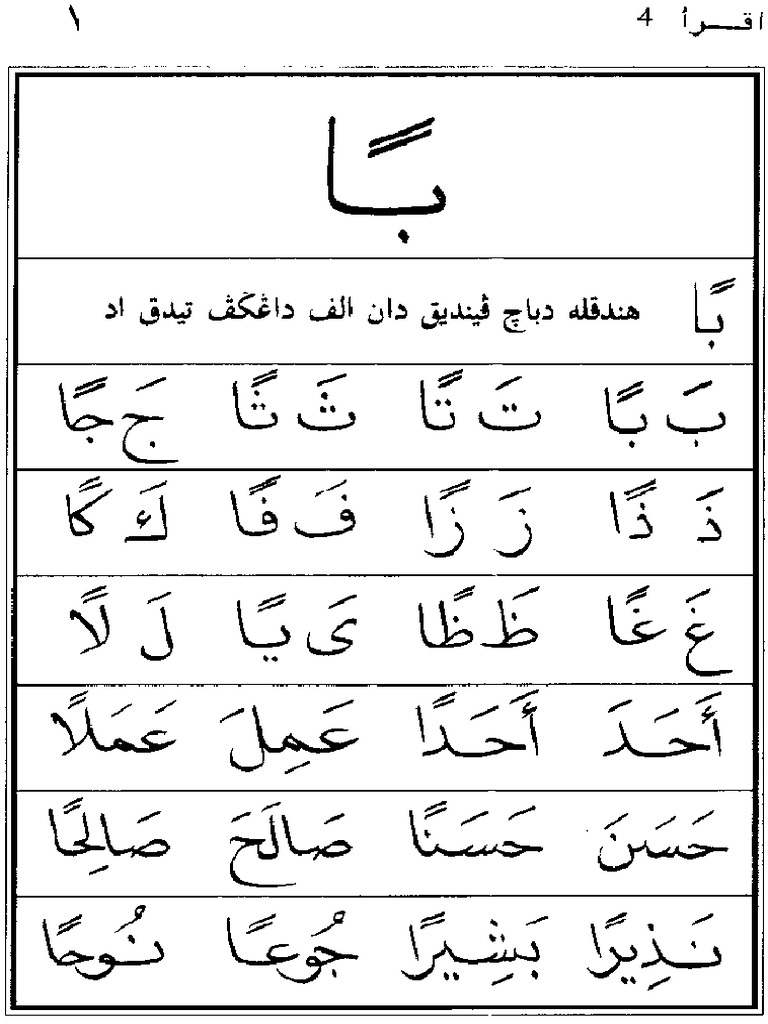 اقرأ 4 ١
بًا
بًا هندقله دباچ ڤينديق دان الف داڠكڤ تيدق اد
بَ بًا تَ تًا ثَ ثًا جَ جًا
ذَ ذًا زَ زًا فَ فًا كَ كًا
غَ غًا ظَ ظًا ىَ يًا لَ لًا
أَحَدَ أَحَدًا عَمِلَ عَمَلًا
حَسَنَ حَسَنًا صَالَحَ صَالِحًا
نَذِيرًا بَشِيرًا جُوعًا نُوحًا